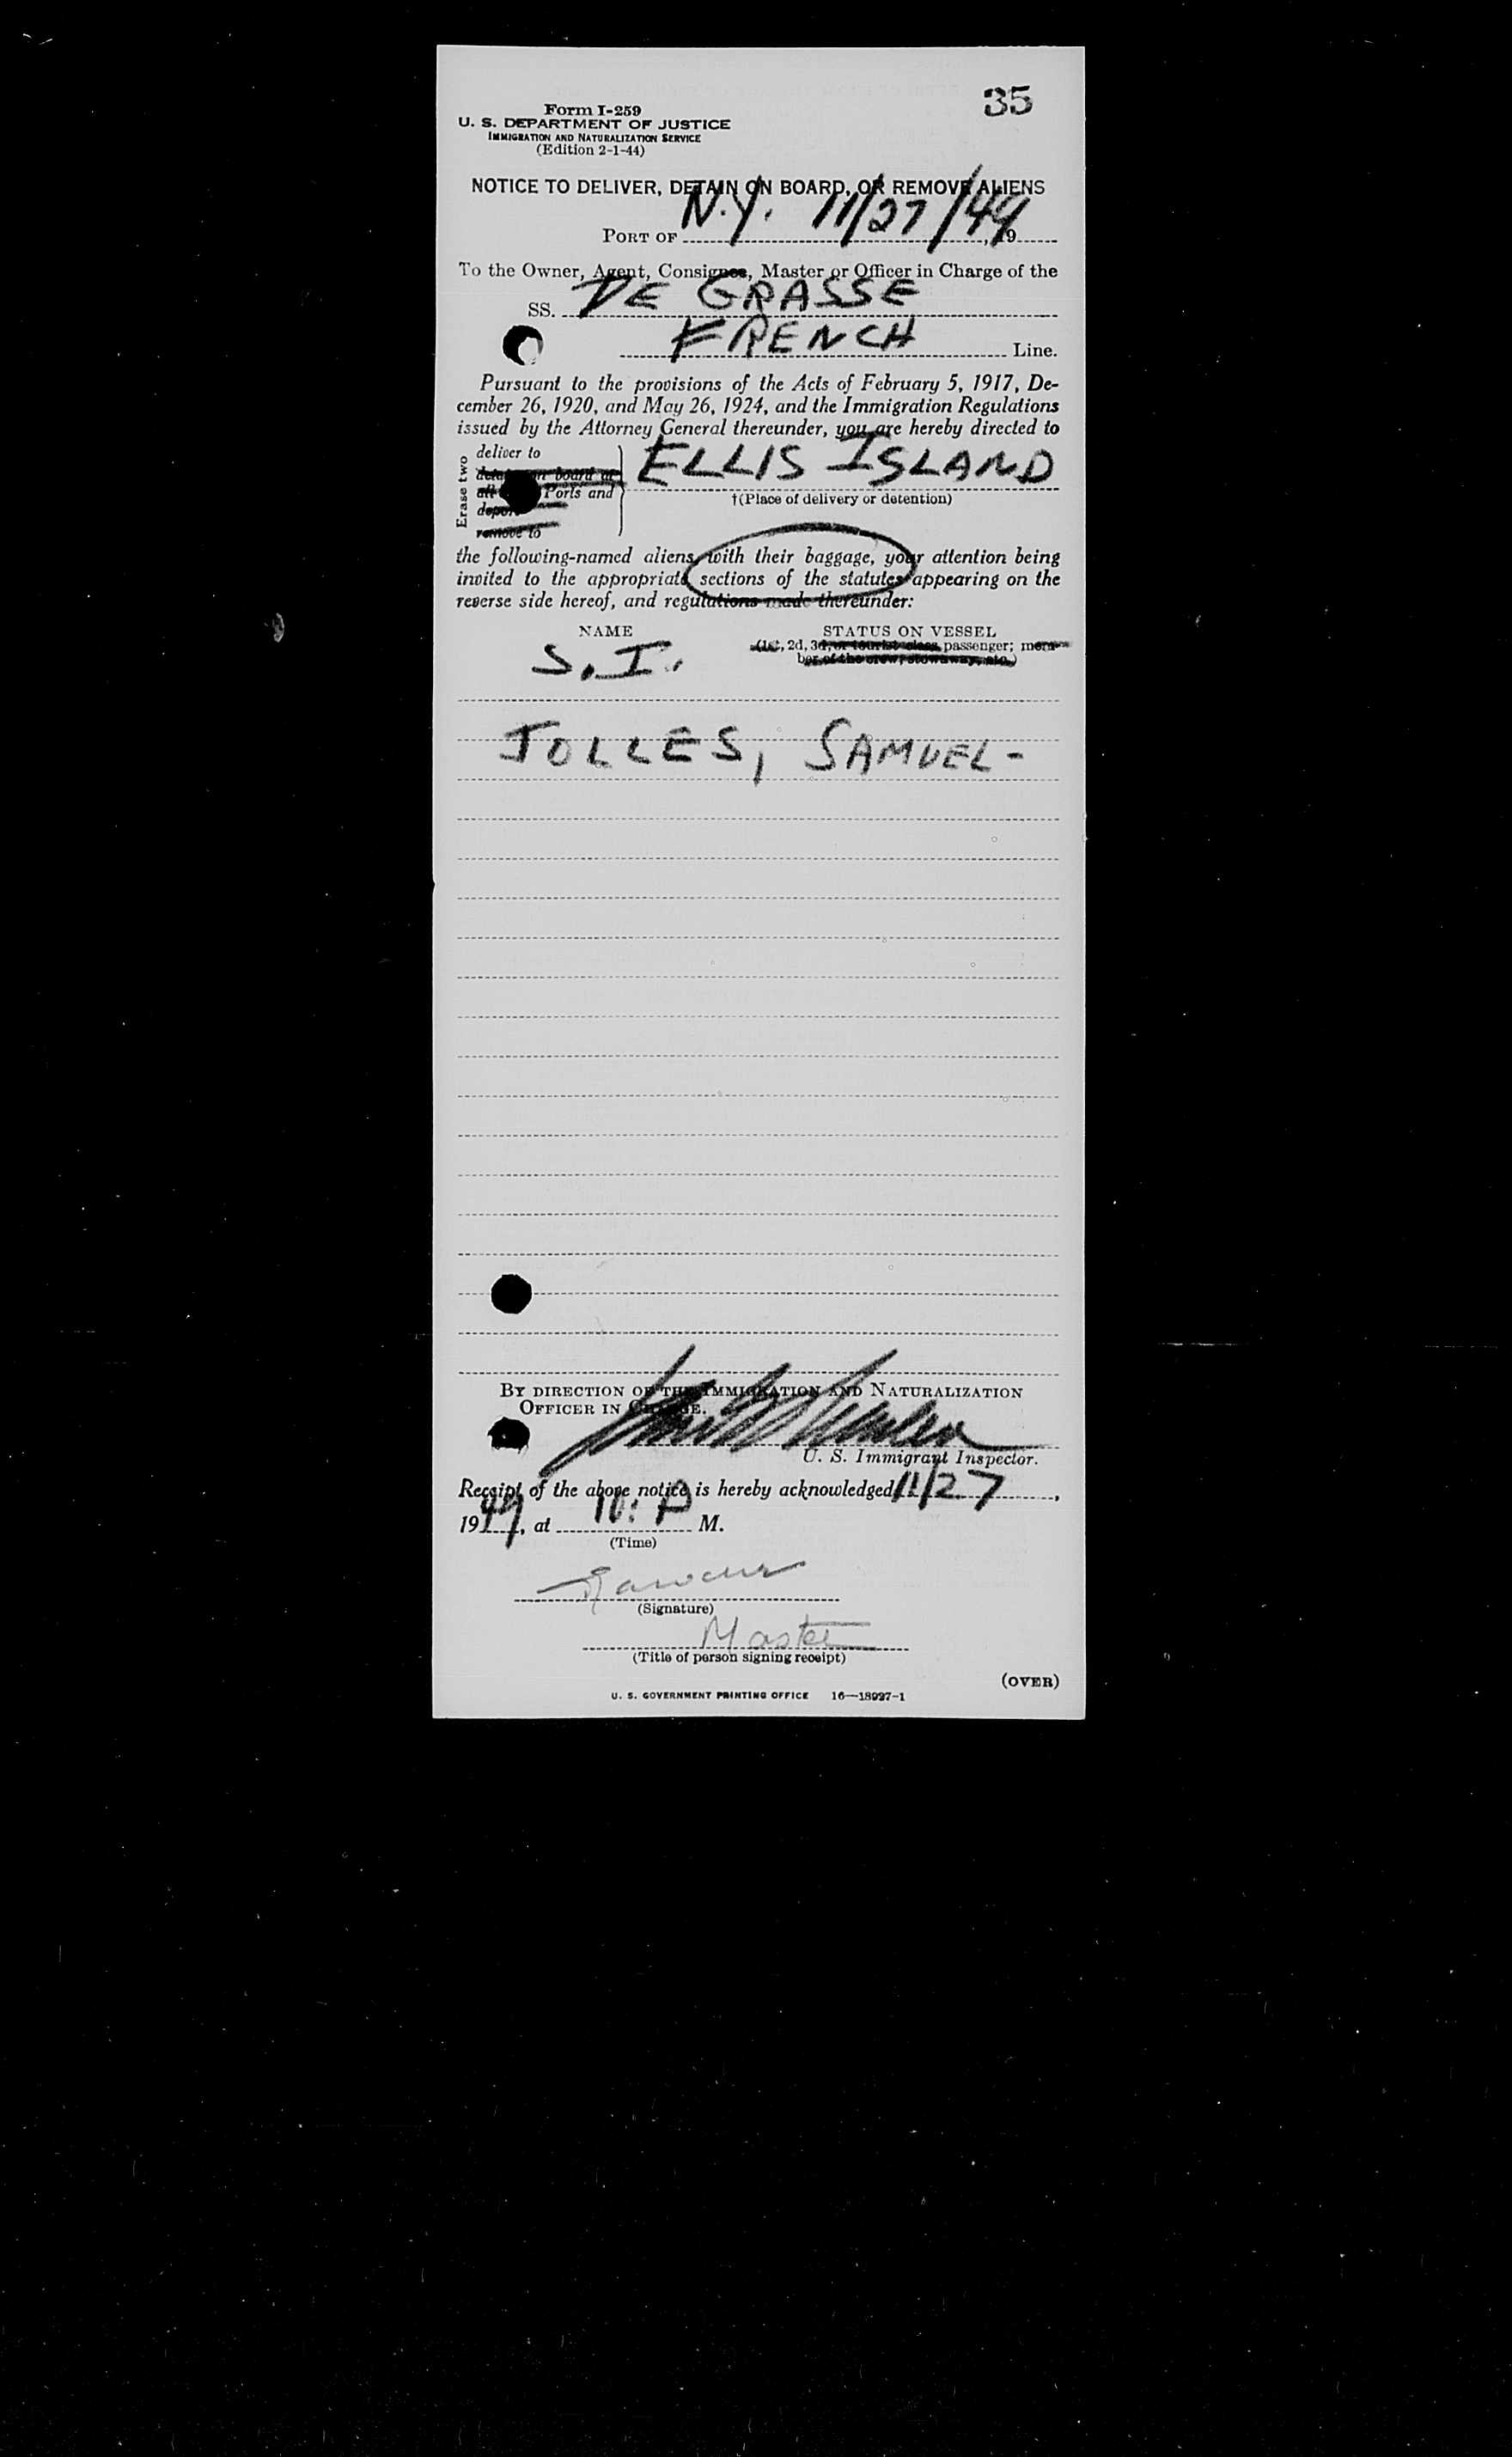 35
Form I-259
U. S. DEPARTMENT OF JUSTICE
IMMIGRATION AND NATURALIZATION SERVICE
(Edition 2-1-44)
NOTICE TO DELIVER, DETAIN ON BOARD, OR REMOVE ALIENS
PORT OF N.Y. 11/27/49, 19
To the Owner, Agent, Consignee, Master or Officer in Charge of the
SS. DE GRASSE
FRENCH Line.
Pursuant to the provisions of the Acts of February 5, 1917, De-
cember 26, 1920, and May 26, 1924, and the Immigration Regulations
issued by the Attorney General thereunder, you are hereby directed to
Erase two
deliver to
detain on board at
all Ports and
deport
remove to
ELLIS ISLAND
†(Place of delivery or detention)
the following-named aliens with their baggage, your attention being
invited to the appropriate sections of the statutes appearing on the
reverse side hereof, and regulations made thereunder:
NAME STATUS ON VESSEL
(1st, 2d, 3d, or tourist class passenger; mem-
ber of the crew, stowaway, etc.)
S.I.
JOLLES, SAMUEL-
BY DIRECTION OF THE IMMIGRATION AND NATURALIZATION
OFFICER IN CHARGE.
U. S. Immigrant Inspector.
Receipt of the above notice is hereby acknowledged 11/27,
1949, at 10: P M.
(Time)
(Signature)
Master
(Title of person signing receipt)
(OVER)
U. S. GOVERNMENT PRINTING OFFICE 16—18927-1